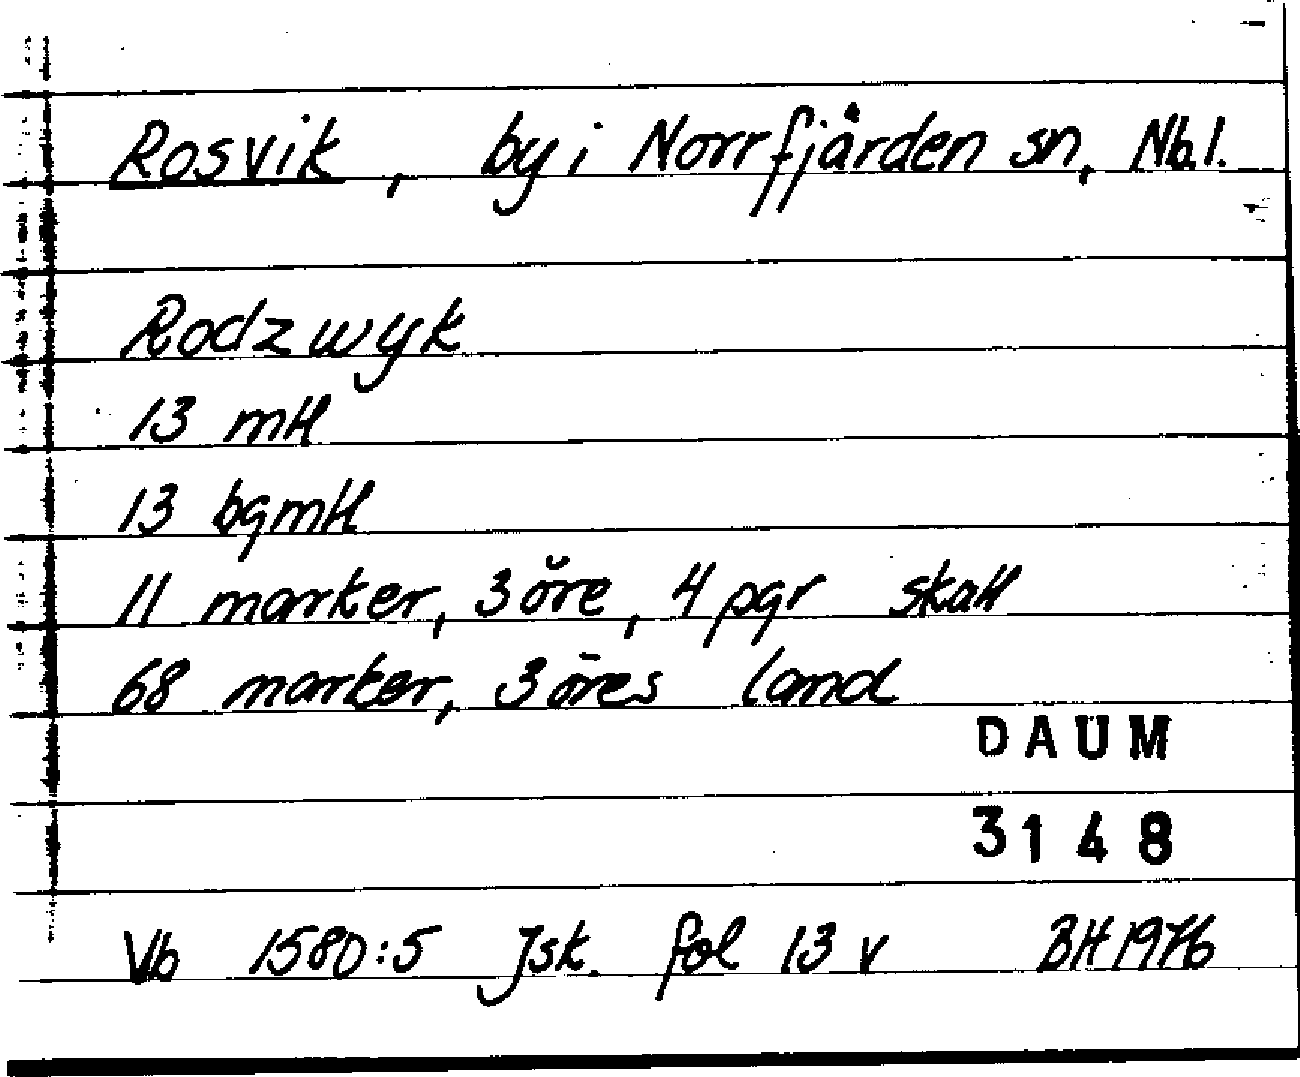 Rosvik, by i Norrfjärden sn, Nb.l.
Rodzwyk
13 mtl
13 bgmtl
11 marker, 3 öre, 4 pgr skatt
68 marker, 3 öres land
DAUM
3148
Vb 1580:5 Jsk. fol 13 v BH 1976